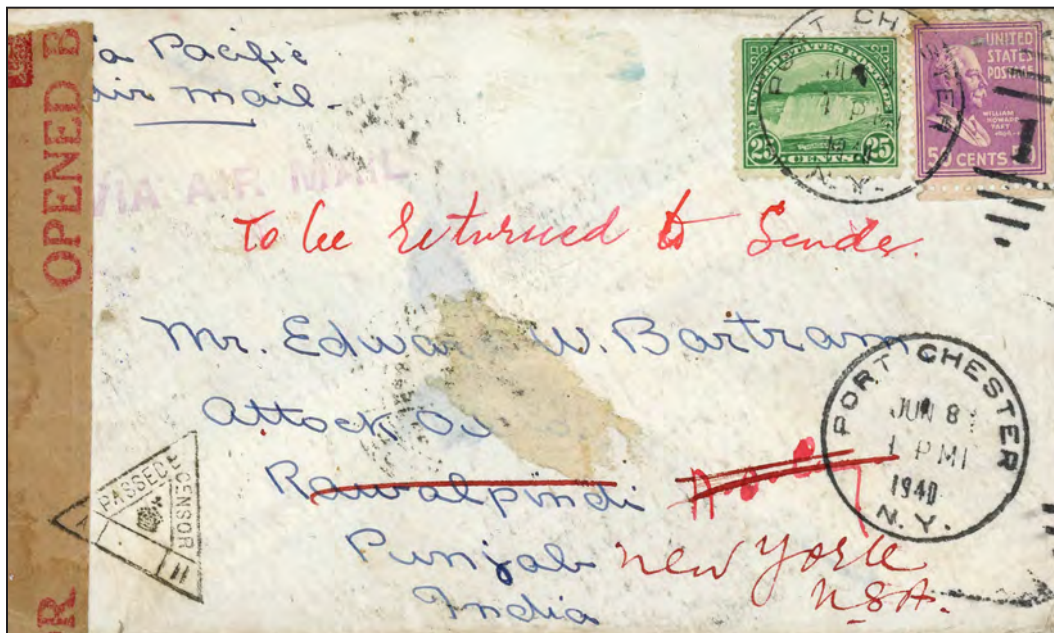 OPENED B
a Pacific
air mail-
VIA AIR MAIL
UNITED STATES POSTAGE
25 CENTS 25
PORT CHESTER
1 PM
N.Y.
UNITED
STATES
POSTAGE
WILLIAM
HOWARD
TAFT
50 CENTS
To be returned to Sender.
Mr. Edward W. Bartram
Attock
Rawalpindi
Punjab New York
India USA.
PORT CHESTER
JUN 8
1 PM
1940
N.Y.
PASSED
CENSOR
11